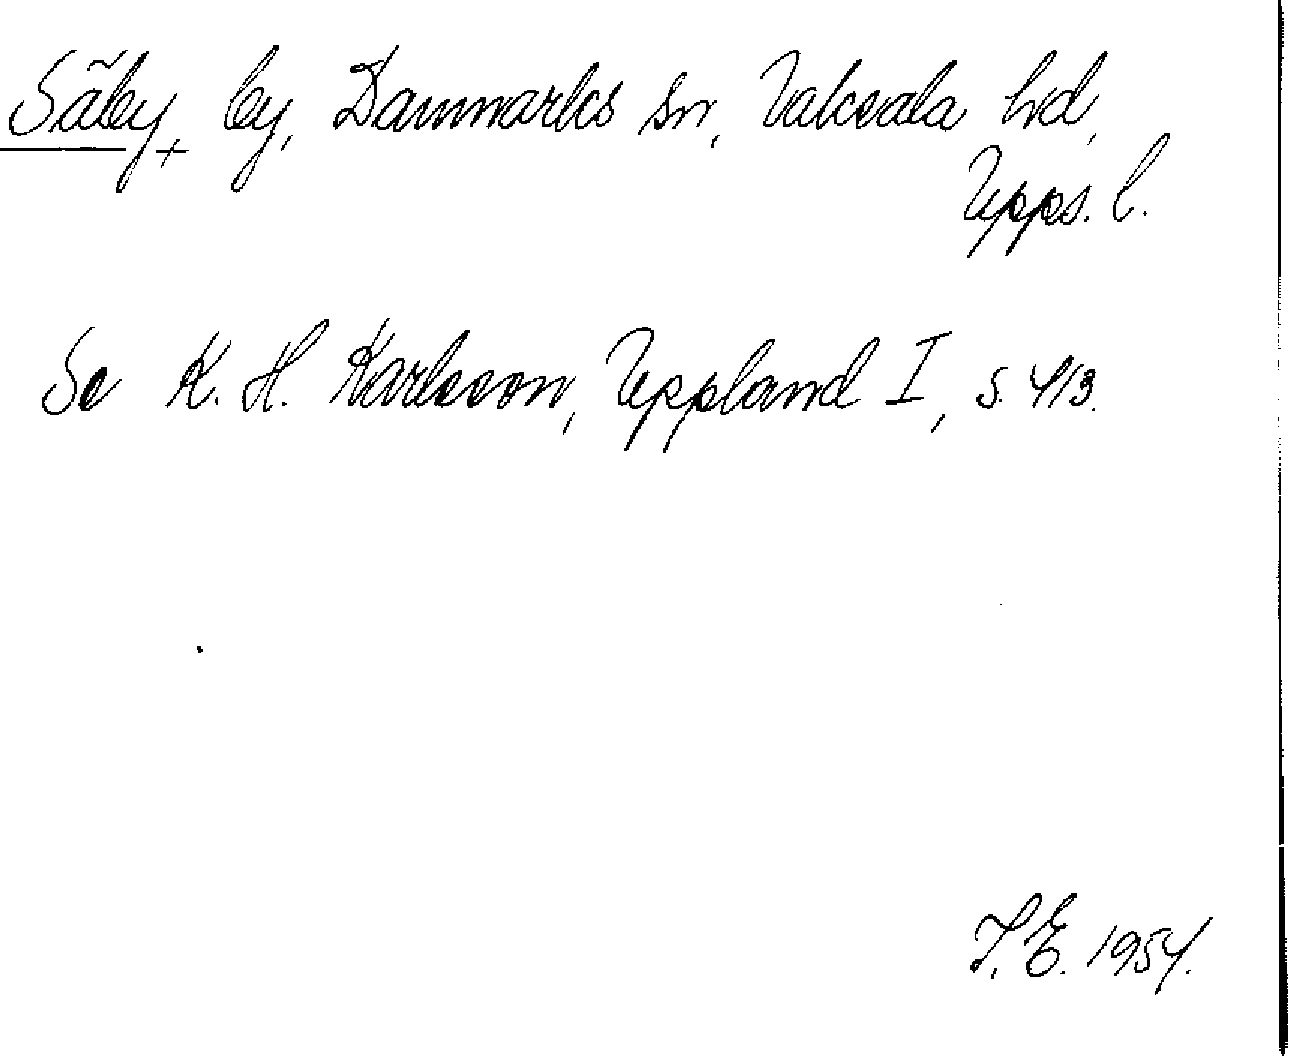 Säby, by, Danmarks sn, Vaksala hd,
Upps. l.
Se K. H. Karlsson, Uppland I, s. 413.
T. E. 1954.